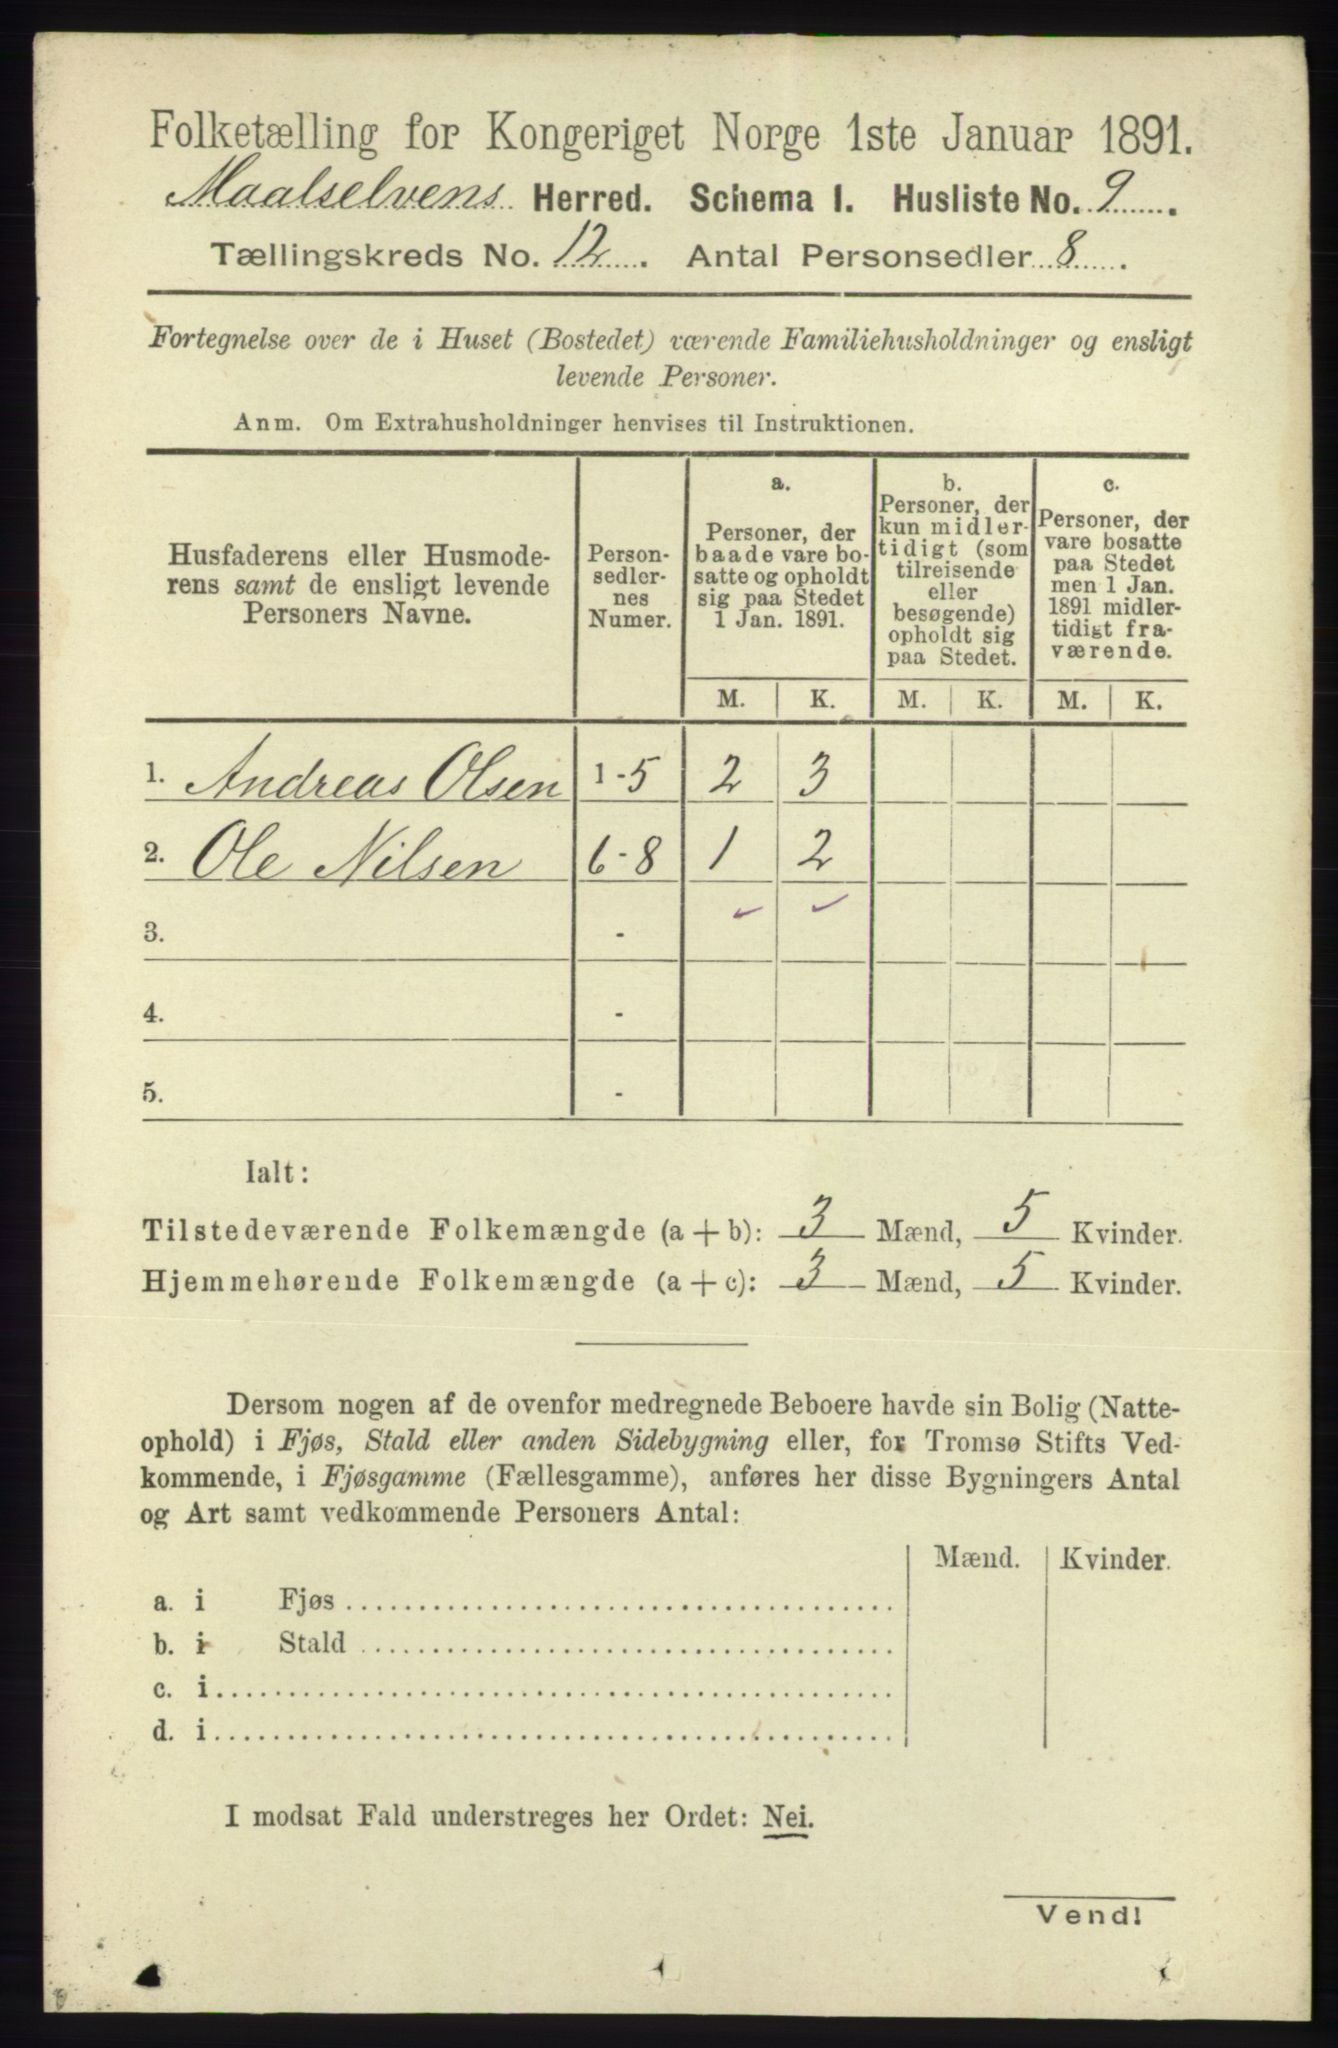 Folketælling for Kongeriget Norge 1ste Januar 1891.
Maalselvens Herred. Schema 1. Husliste No. 9.
Tællingskreds No. 12. Antal Personsedler 8.
Fortegnelse over de i Huset (Bostedet) værende Familiehusholdninger og ensligt
levende Personer.
Anm. Om Extrahusholdninger henvises til Instruktionen.
Husfaderens eller Husmode-
rens samt de ensligt levende
Personers Navne.
Person-
sedler-
nes
Numer.
a.
Personer, der
baade vare bo-
satte og opholdt
sig paa Stedet
1 Jan. 1891.
b.
Personer, der
kun midler-
tidigt (som
tilreisende
eller
besøgende)
opholdt sig
paa Stedet.
c.
Personer, der
vare bosatte
paa Stedet
men 1 Jan.
1891 midler-
tidigt fra-
værende.
M. K. M. K. M. K.
1. Andreas Olsen 1-5 2 3
2. Ole Nilsen 6-8 1 2
3. -
4. -
5. -
Ialt:
Tilstedeværende Folkemængde (a + b): 3 Mænd, 5 Kvinder.
Hjemmehørende Folkemængde (a + c): 3 Mænd, 5 Kvinder.
Dersom nogen af de ovenfor medregnede Beboere havde sin Bolig (Natte-
ophold) i Fjøs, Stald eller anden Sidebygning eller, for Tromsø Stifts Ved-
kommende, i Fjøsgamme (Fællesgamme), anføres her disse Bygningers Antal
og Art samt vedkommende Personers Antal:
Mænd. Kvinder.
a. i Fjøs
b. i Stald
c. i
d. i
I modsat Fald understreges her Ordet: Nei.
Vend!